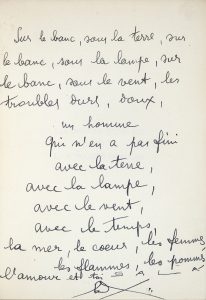 Sur le banc, sous la terre, sur
le banc, sous la lampe, sur
le banc, sous le vent, les
troubles durs, doux,
un homme
qui n'en a pas fini
avec la terre,
avec la lampe,
avec le vent,
avec le temps,
la mer, le coeur, les femmes,
les flammes, les pommes
l'amour et toi